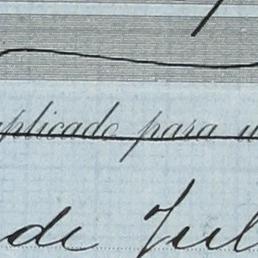 plicado para u
de Jul